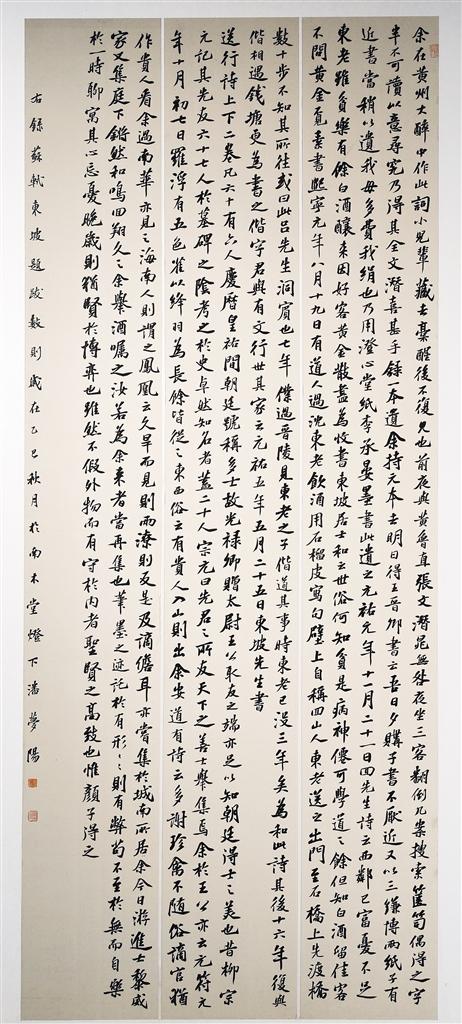 余在黄州大醉中作此詞小兒輩藏去藁醒後不復見也前夜與黄魯直張文潛晁無咎夜坐三客翻倒几案搜索篋笥偶得之字
半不可讀以意尋究乃得其全文潛喜甚手錄一本遺余持元本去明日得王晉卿書云吾日夕購子書不厭近又以三縑博兩紙子有
近書當稍以遺我毋多費我絹也乃用澄心堂紙李承晏墨書此遺之元祐元年十一月二十一日回先生詩云西鄰已富憂不足
東老雖貧樂有餘白酒釀来因好客黄金散盡為收書東坡居士和云世俗何知貧是病神僊可學道之餘但知白酒留佳客
不問黄金覓素書熙寧元年八月十九日有道人過沈東老飲酒用石榴皮寫句壁上自稱回山人東老送之出門至石橋上先渡橋
數十步不知其所往或曰此吕先生洞賓也七年僕過晉陵見東老之子偕道其事時東老已没三年矣為和此詩其後十六年復與
偕相遇錢塘更為書之偕字君與有文行世其家云元祐五年五月二十五日東坡先生書
送行詩上下二卷凡六十有六人慶曆皇祐間朝廷號稱多士故光祿卿贈太尉王公取友之端亦足以知朝廷得士之美也昔柳宗
元記其先友六十七人於墓碑之陰考之於史卓然知名者蓋二十人宗元曰先君之所友天下之善士舉集焉余於王公亦云元符元
年十月初七日羅浮有五色雀以絳羽為長餘皆從之東西俗云有貴人入山則出余安道有詩云多謝珍禽不隨俗謫官猶
作貴人看余過南華亦見之海南人則謂之鳳凰云久旱而見則雨潦則反是及謫儋耳亦嘗集於城南所居余今日游進士黎威
家又集庭下鏘然和鳴回翔久之余舉酒囑之汝若為余来者當再集也筆墨之迹託於有形々々則有弊苟不至於無而自樂
於一時聊寓其心忘憂晚歲則猶賢於博弈也雖然不假外物而有守於内者聖賢之高致也惟顏子得之
右錄蘇軾東坡題跋數則歲在乙巳秋月於南木堂燈下潘夢陽